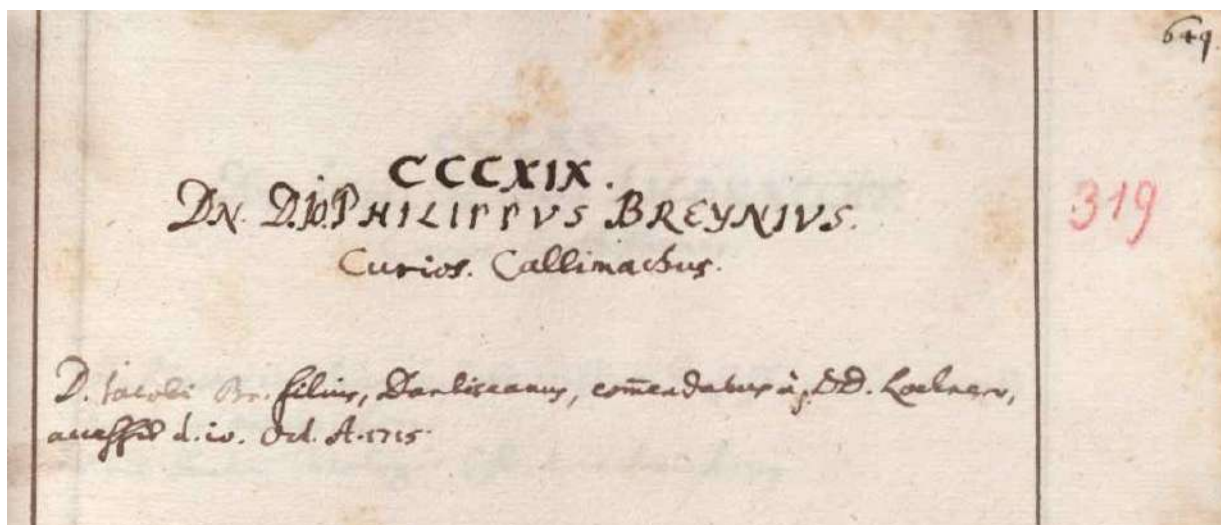 649.
CCCXIX.
DN. D. PHILIPPVS BREYNIVS.
319
Curios. Callimachus.
D. Iacobi Br. filius, Dantiscanus, com̄endatus à DD. Lochner,
accessit d. 10. Oct. A. 1715.